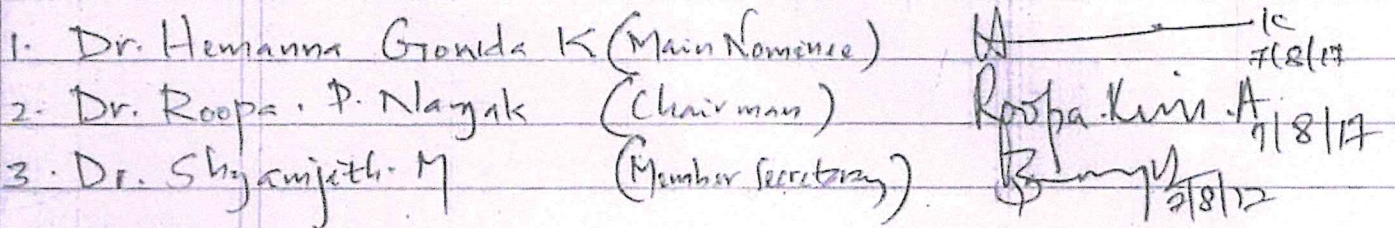 1. Dr. Hemanna Gonda K (Main Nominee) K 7/8/17
2. Dr. Roopa. P. Nayak (Chairman) Roopa. A 7/8/17
3. Dr. Shyamjith. M (Member Secretary) 7/8/17